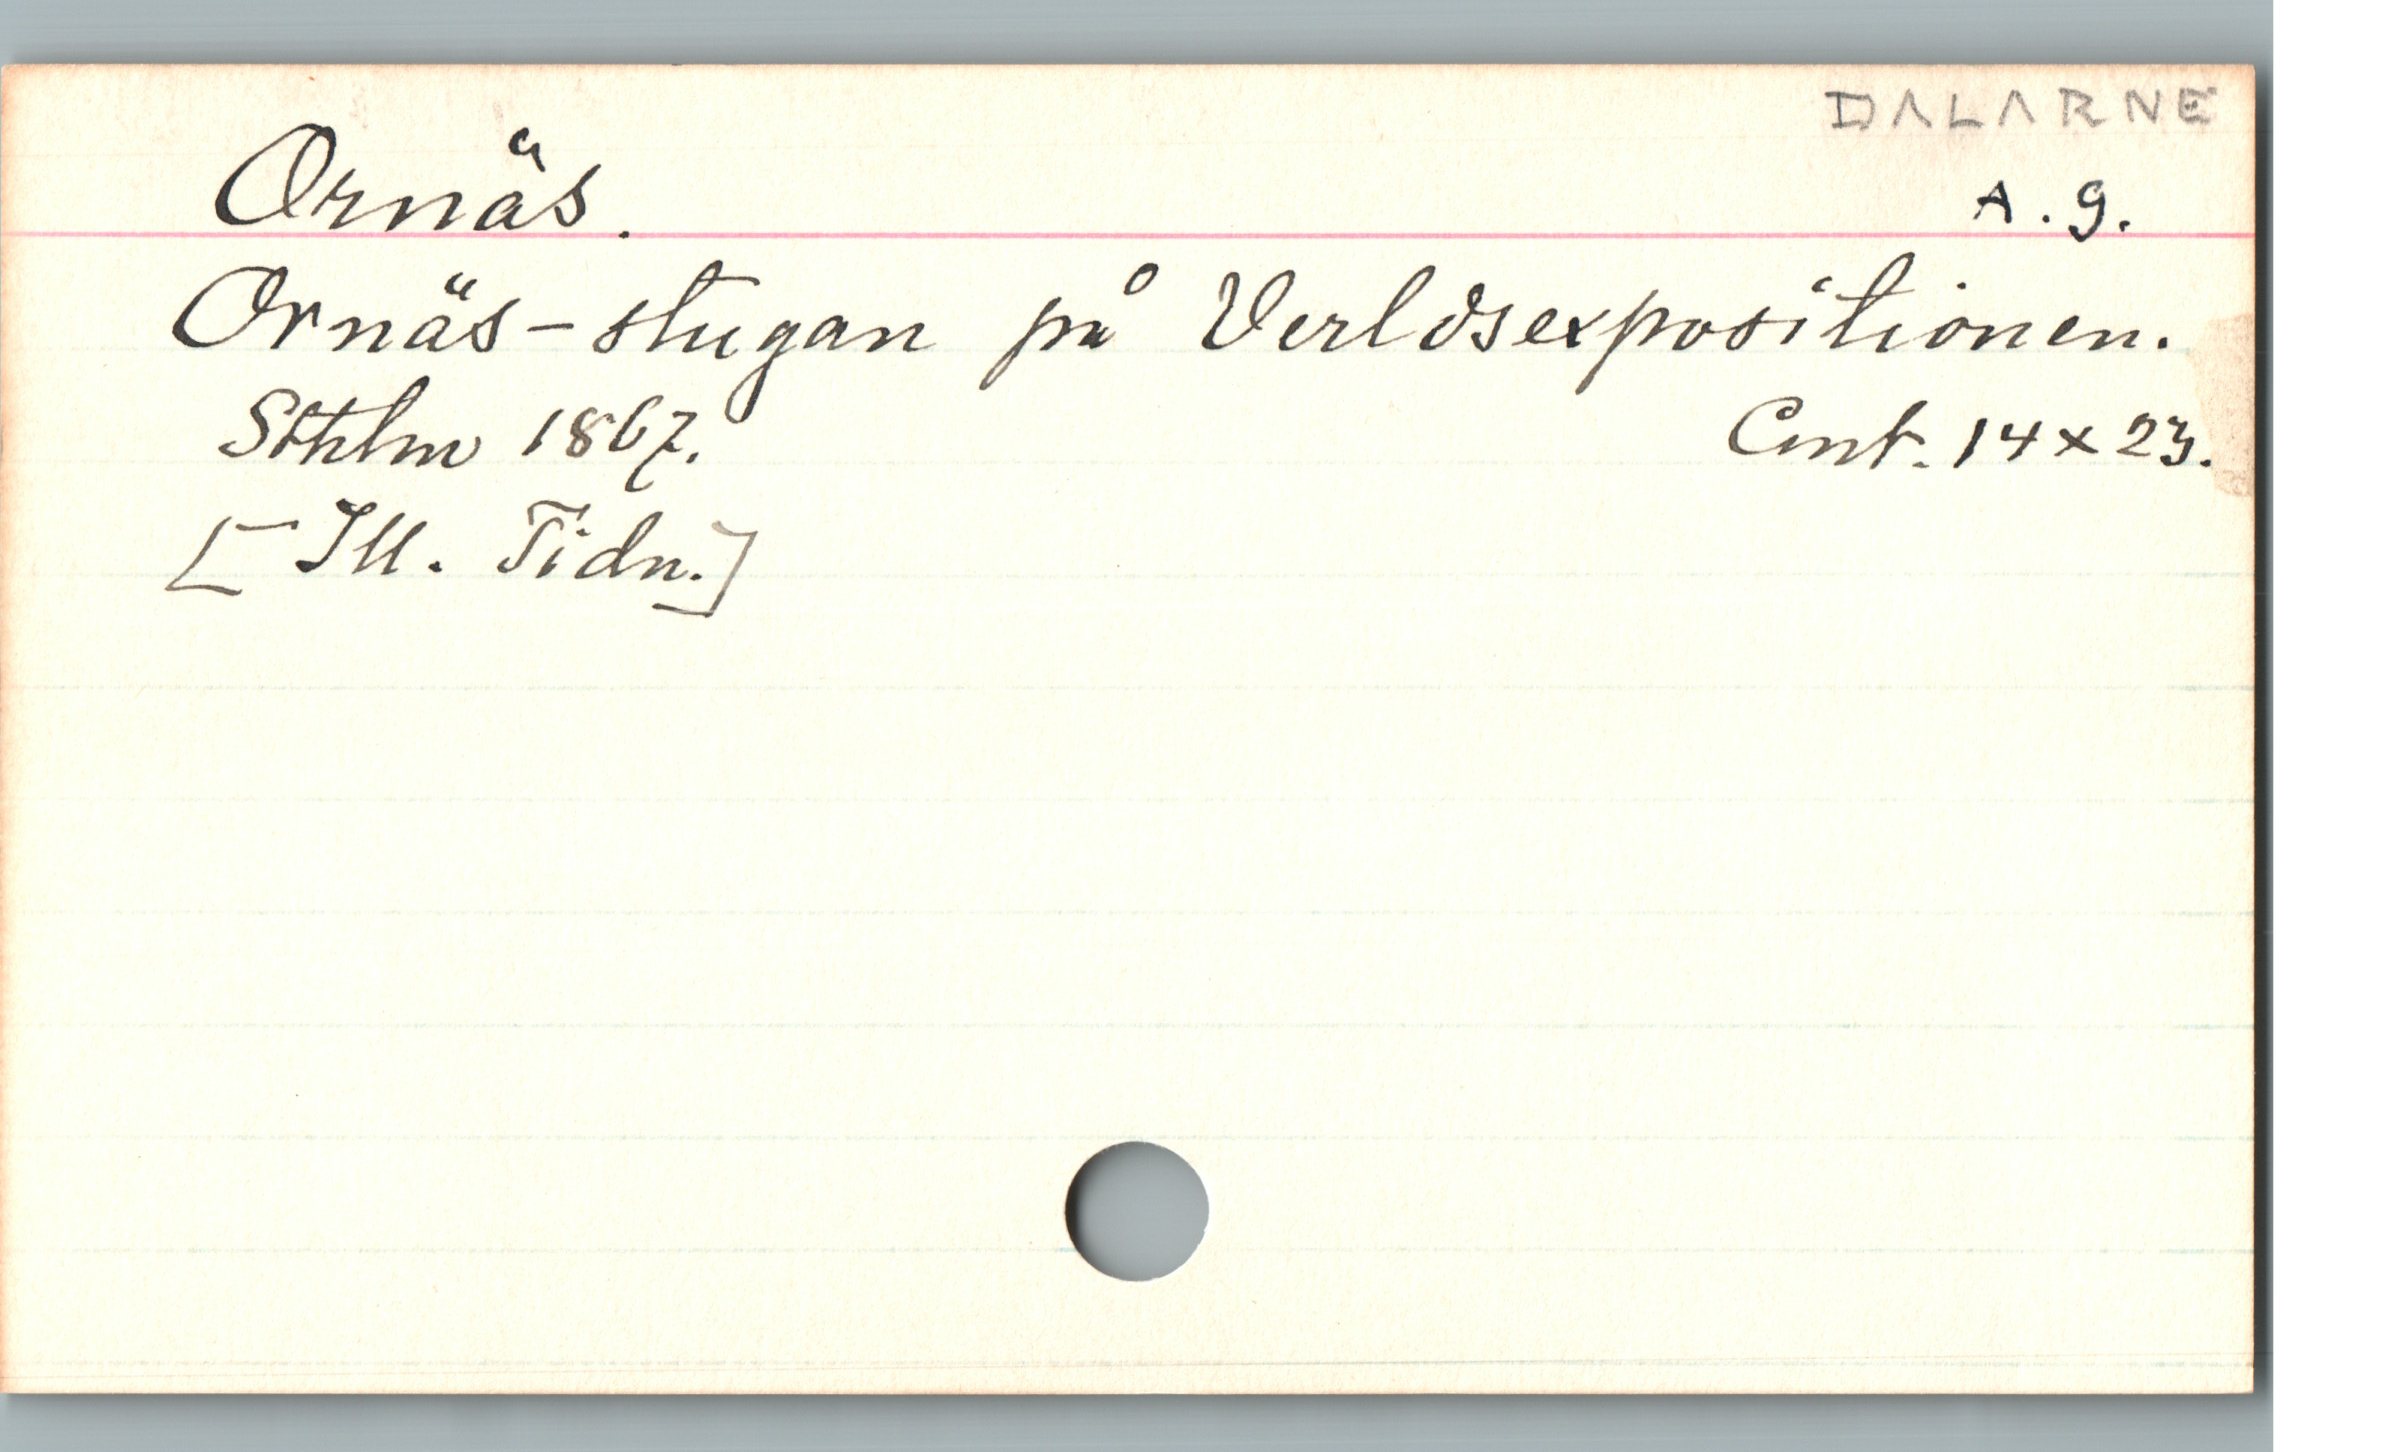 DALARNE
Ornäs. A. 9.
Ornäs-stugan på Verldsexpositionen.
Sthlm 1867. Cmt. 14 x 23.
[Ill. Tidn.]